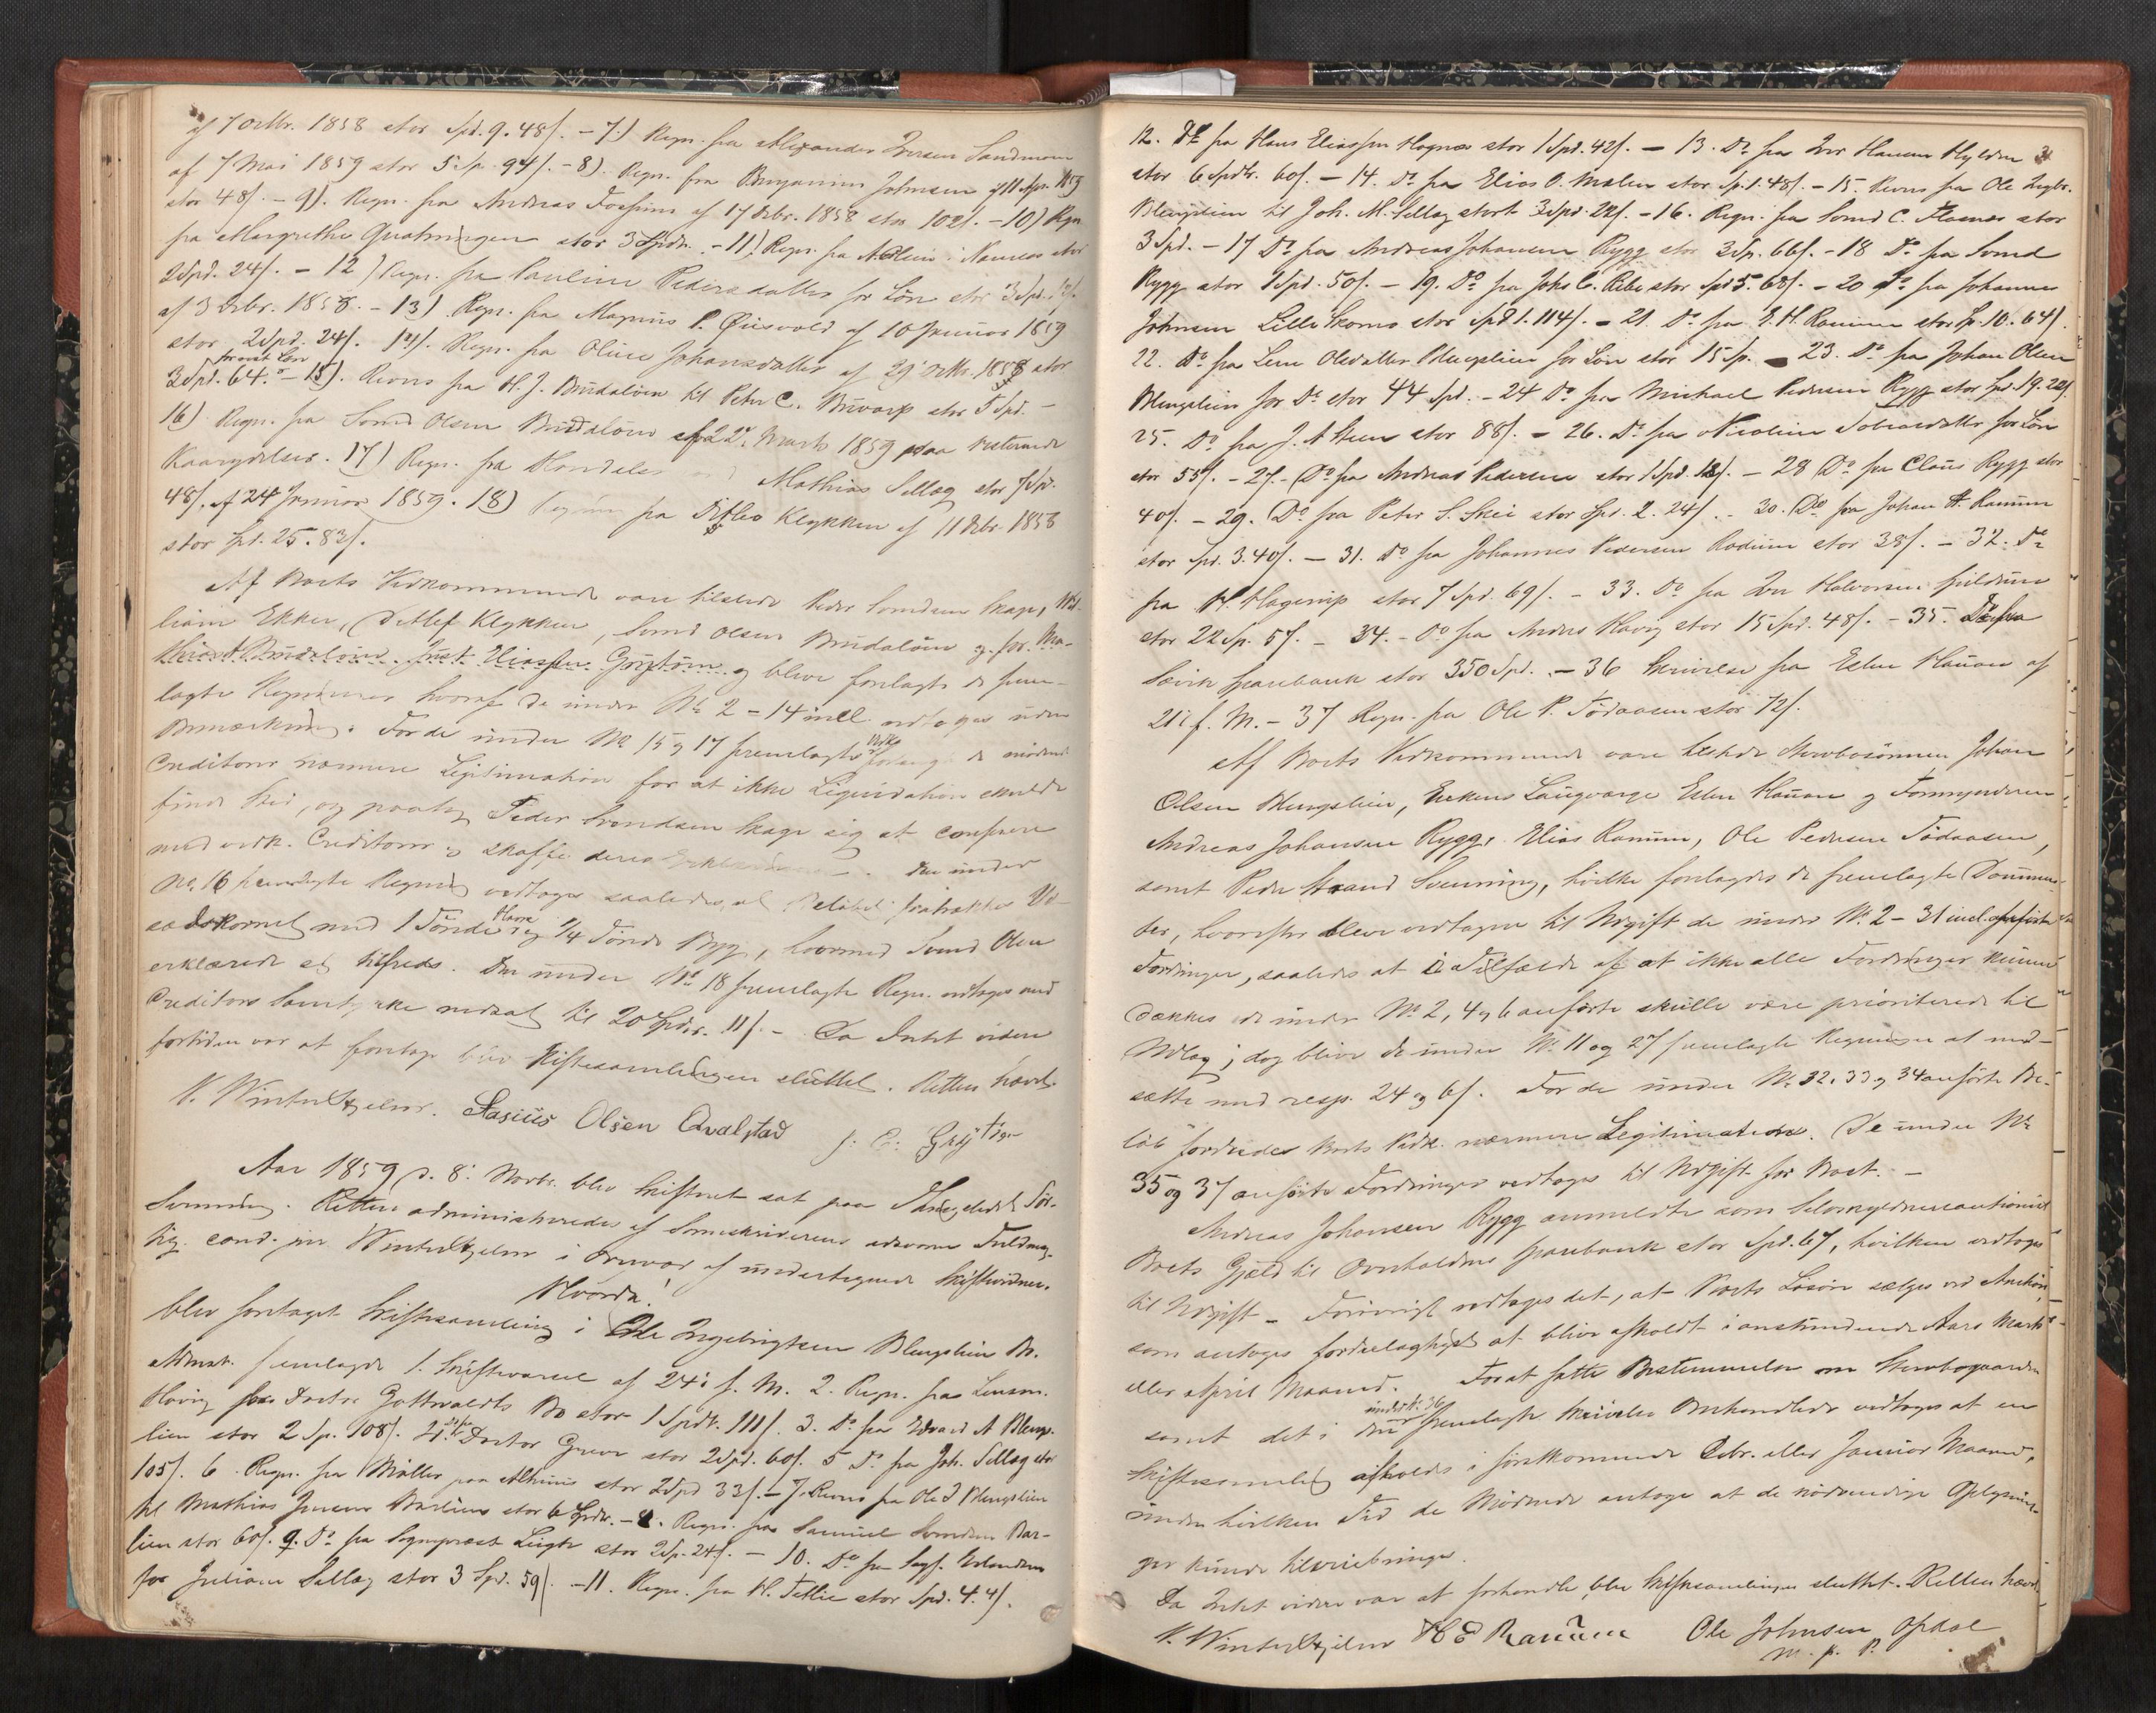 af 7 Octbr. 1858 stor Spd. 9. 48/. - 7.) Regn. fra Alexander Iversen Sandmoen
af 7 Mai 1859 stor 5 Sp. 94/. - 8). Regn. fra Benjamin Johnsen af 11 Apr. 1859
stor 48/. - 9). Regn. fra Andreas Fossum af 17 Decbr. 1858 stor 102/. - 10) Regn
fra Margrethe Qvatningen stor 3 Spdr. - 11) Regn. fra i Namsos stor
2 Spd. 24/. - 12) Regn. fra Pauline Pedersdatter for Løn stor 3 Spd.
af 3 Decbr. 1858. - 13) Regn. fra Magnus P. Øiesvold af 10 Januar 1859
stor 2 Spd. 24/. 14/. Regn. fra Oline Johansdatter af 29 Octbr. 1858 stor
3 Spd. 64. for Løn - 15). Revers fra H. J. Brudaløien til Peter C. Buvarp stor 5 Spd. -
16) Regn. fra Svend Olsen Brudaløien af 22. Marts 1859 paa resterende
Kaarydelser. 17) Regn. fra Mathias Sellæg stor 7 Spd.
48/. af 24 Januar 1859. 18) Regning fra Ditlev Klykken af 11 Decbr. 1858
stor Spd. 25. 83/.
Af Boets Vedkommende vare tilstede Peder Svendsen Skage, Wil-
liam Ekker, Detlef Klykken, Svend Olsen Brudaløien og for Ma-
thias A. Brudaløien Just Eliassen Gørtzøien og bleve forelagte de frem-
lagte Regninger hvoraf de under No. 2 - 14 incl. vedtoges uden
Bemærkning. For de under No. 15 og 17 fremlagte forlangte de mødende
Creditorer nærmere Legitimation for at ikke Liqvidation skulde
finde Sted, og paatog Peder Svendsen Skage sig at conferere
med vedk. Creditorer og skaffe deres Erklæringer. Den under
No. 16 fremlagte Regning vedtoges saaledes, at Beløbet fratrækkes Ve-
sædekornet med 1 Tønde Havre og 1/4 Tønde Byg, hvormed Svend Olsen
erklærede sig tilfreds. Den under No. 18 fremlagte Regn. vedtoges med
Creditors Samtykke nedsat til 20 Spdr. 11/. - Da Intet videre
fortiden var at foretage blev Skiftesamlingen sluttet. Retten hævet.
V. Winterhjelm. Lasius Olsen Qvalstad J. E. Grytøien
Aar 1859 d. 8. Novbr. blev Skifteret sat paa Thingstedet Sør-
Svenning. Retten administreredes af Sorenskriverens edsvorne Fuldmæg-
tig cand. jur. Winterhjelm i Overvær af undertegnede Skiftevidner.
Hvorda!
blev foretaget Skiftesamling i Ole Ingebrigtsen Blengslien Bo.
Admst. fremlagde 1. Skiftevarsel af 24. f. M. 2. Regn. fra Lensm.
Havig fra Doctor Gottwaldts Bo stor 1 Spdr. 111/. 3. Do. fra Edvard A. Blengs-
lien stor 2 Sp. 108/. 4. Do. fra Doctor Greve stor 2 Spd. 60/. 5 Do. fra Joh. Sellæg stor
105/. 6. Regn. fra Møller paa Alhuus stor 2 Spd 33/. - 7. Revers fra Ole I. Blengslien
til Mathias Jensen Barlien stor 6 Spdr. - 8. Regn. fra Samuel Svendsen Bar-
lien stor 60/. 9. Do. fra Sognepræst Leigh stor 2 Sp. 24/. - 10. Do. fra Sagf. Erlandsen
for Juliane Sellæg stor 3 Spd. 59/. - 11. Regn. fra H. Tetlie stor Spd. 4. 4/.
12. Do. fra Hans Eliassen Hognæs stor 1 Spd. 42/. - 13. Do. fra Iver Hansen Hylden
stor 6 Spdr. 60/. - 14. Do. fra Elias O. Moelen stor Sp. 1. 48/. - 15. Revers fra Ole Ingbr.
Blengslien til Joh. M. Sellæg stort 3 Spd. 22/. - 16. Regn. fra Svend C. Flasnæs stor
3 Spd. - 17 Do. fra Andreas Johansen Rygg stor 3 Sp. 66/. - 18 Do. fra Svend
Rygg stor 1 Spd. 50/. - 19. Do. fra Johs C. Ribe stor Spd 5. 68/. - 20 Do. fra Johannes
Johnsen Lille Skomo stor Spd 1. 114/. - 21. Do. fra E. H. Ranum stor Sp. 10. 64/.
22. Do. fra Lene Olsdatter Blengslien for Løn stor 15 Sp. - 23. Do. fra Johan Olsen
Blengslien for Do. stor 44 Spd. - 24 Do. fra Michael Pedersen Rygg stor Spd. 19. 22/.
25. Do. fra J. A. Steen stor 88/. - 26. Do. fra Nicoline Tobiasdatter for Løn
stor 55/. - 27. Do. fra Andreas Pedersen stor 1 Spd. 12/. - 28 Do. fra Claus Rygg stor
40/. - 29. Do. fra Peter S. Skei stor Spd. 2. 24/. - 30. Do. fra Johan H. Ranum
stor Spd. 3. 40/. - 31. Do. fra Johannes Pedersen Rodum stor 38/. - 32. Do.
fra H. Hagerup stor 7 Spd. 69/. - 33. Do. fra Iver Halvorsen Spildum
stor 22 Sp. 57. - 34. - Do. fra Anders Havig stor 15 Spd. 48/. - 35. Do. fra
Sævik Sparebank stor 350 Spd. - 36 Skrivelse fra Esten Hauan af
21 i f. M. - 37 Regn. fra Ole P. Tødaasen stor 72/.
Af Boets Vedkommende vare tilstede Stervbosønnen Johan
Olsen Blengslien, Enkens Laugværge Esten Hauan og Formynderen
Andreas Johansen Rygg, Elias Ranum, Ole Pedersen Tødaasen,
samt Peder Strand Svenning, hvilke forelagdes de fremlagte Documen-
ter, hvorefter bleve vedtagne til Udgift de under No. 2 - 31 incl. anførte
Fordringer, saaledes at i Tilfælde af at ikke alle Fordringer kunne
dækkes de under No. 2, 4 og 6 anførte skulle være prioriterede til
Udlæg; dog bleve de under No. 11 og 27 fremlagte Regninger at ned-
sætte med resp. 24 og 6/. For de under No. 32, 33 og 34 anførte Be-
løb fordredes Boets Vedk. nærmere Legitimation. De under No.
35 og 37 anførte Fordringer vedtoges til Udgift for Boet. -
Andreas Johansen Rygg anmeldte som Selvskyldnercautionist
Boets Gjæld til Overhaldens Sparebank stor Spd. 67, hvilken vedtoges
til Udgift. - Forøvrigt vedtoges det, at Boets Løsøre sælges ved Auction,
som antoges fordeelagtigst at blive afholdt i anstundende Aars Marts
eller April Maaned. For at fatte Bestemmelse om Stervbogaarden
samt det i den under No. 36 fremlagte Skrivelse Omhandlede vedtoges at en
Skiftesamling afholdes i førstkommende Decbr. eller Januar Maaned,
inden hvilken Tid de Mødende antoge at de nødvendige Oplysnin-
ger kunde tilveiebringes.
Da Intet videre var at forhandle, blev Skiftesamlingen sluttet. Retten hævet
V. Winterhjelm H E Ranum Ole Johnsen Opdal
m. p. P.